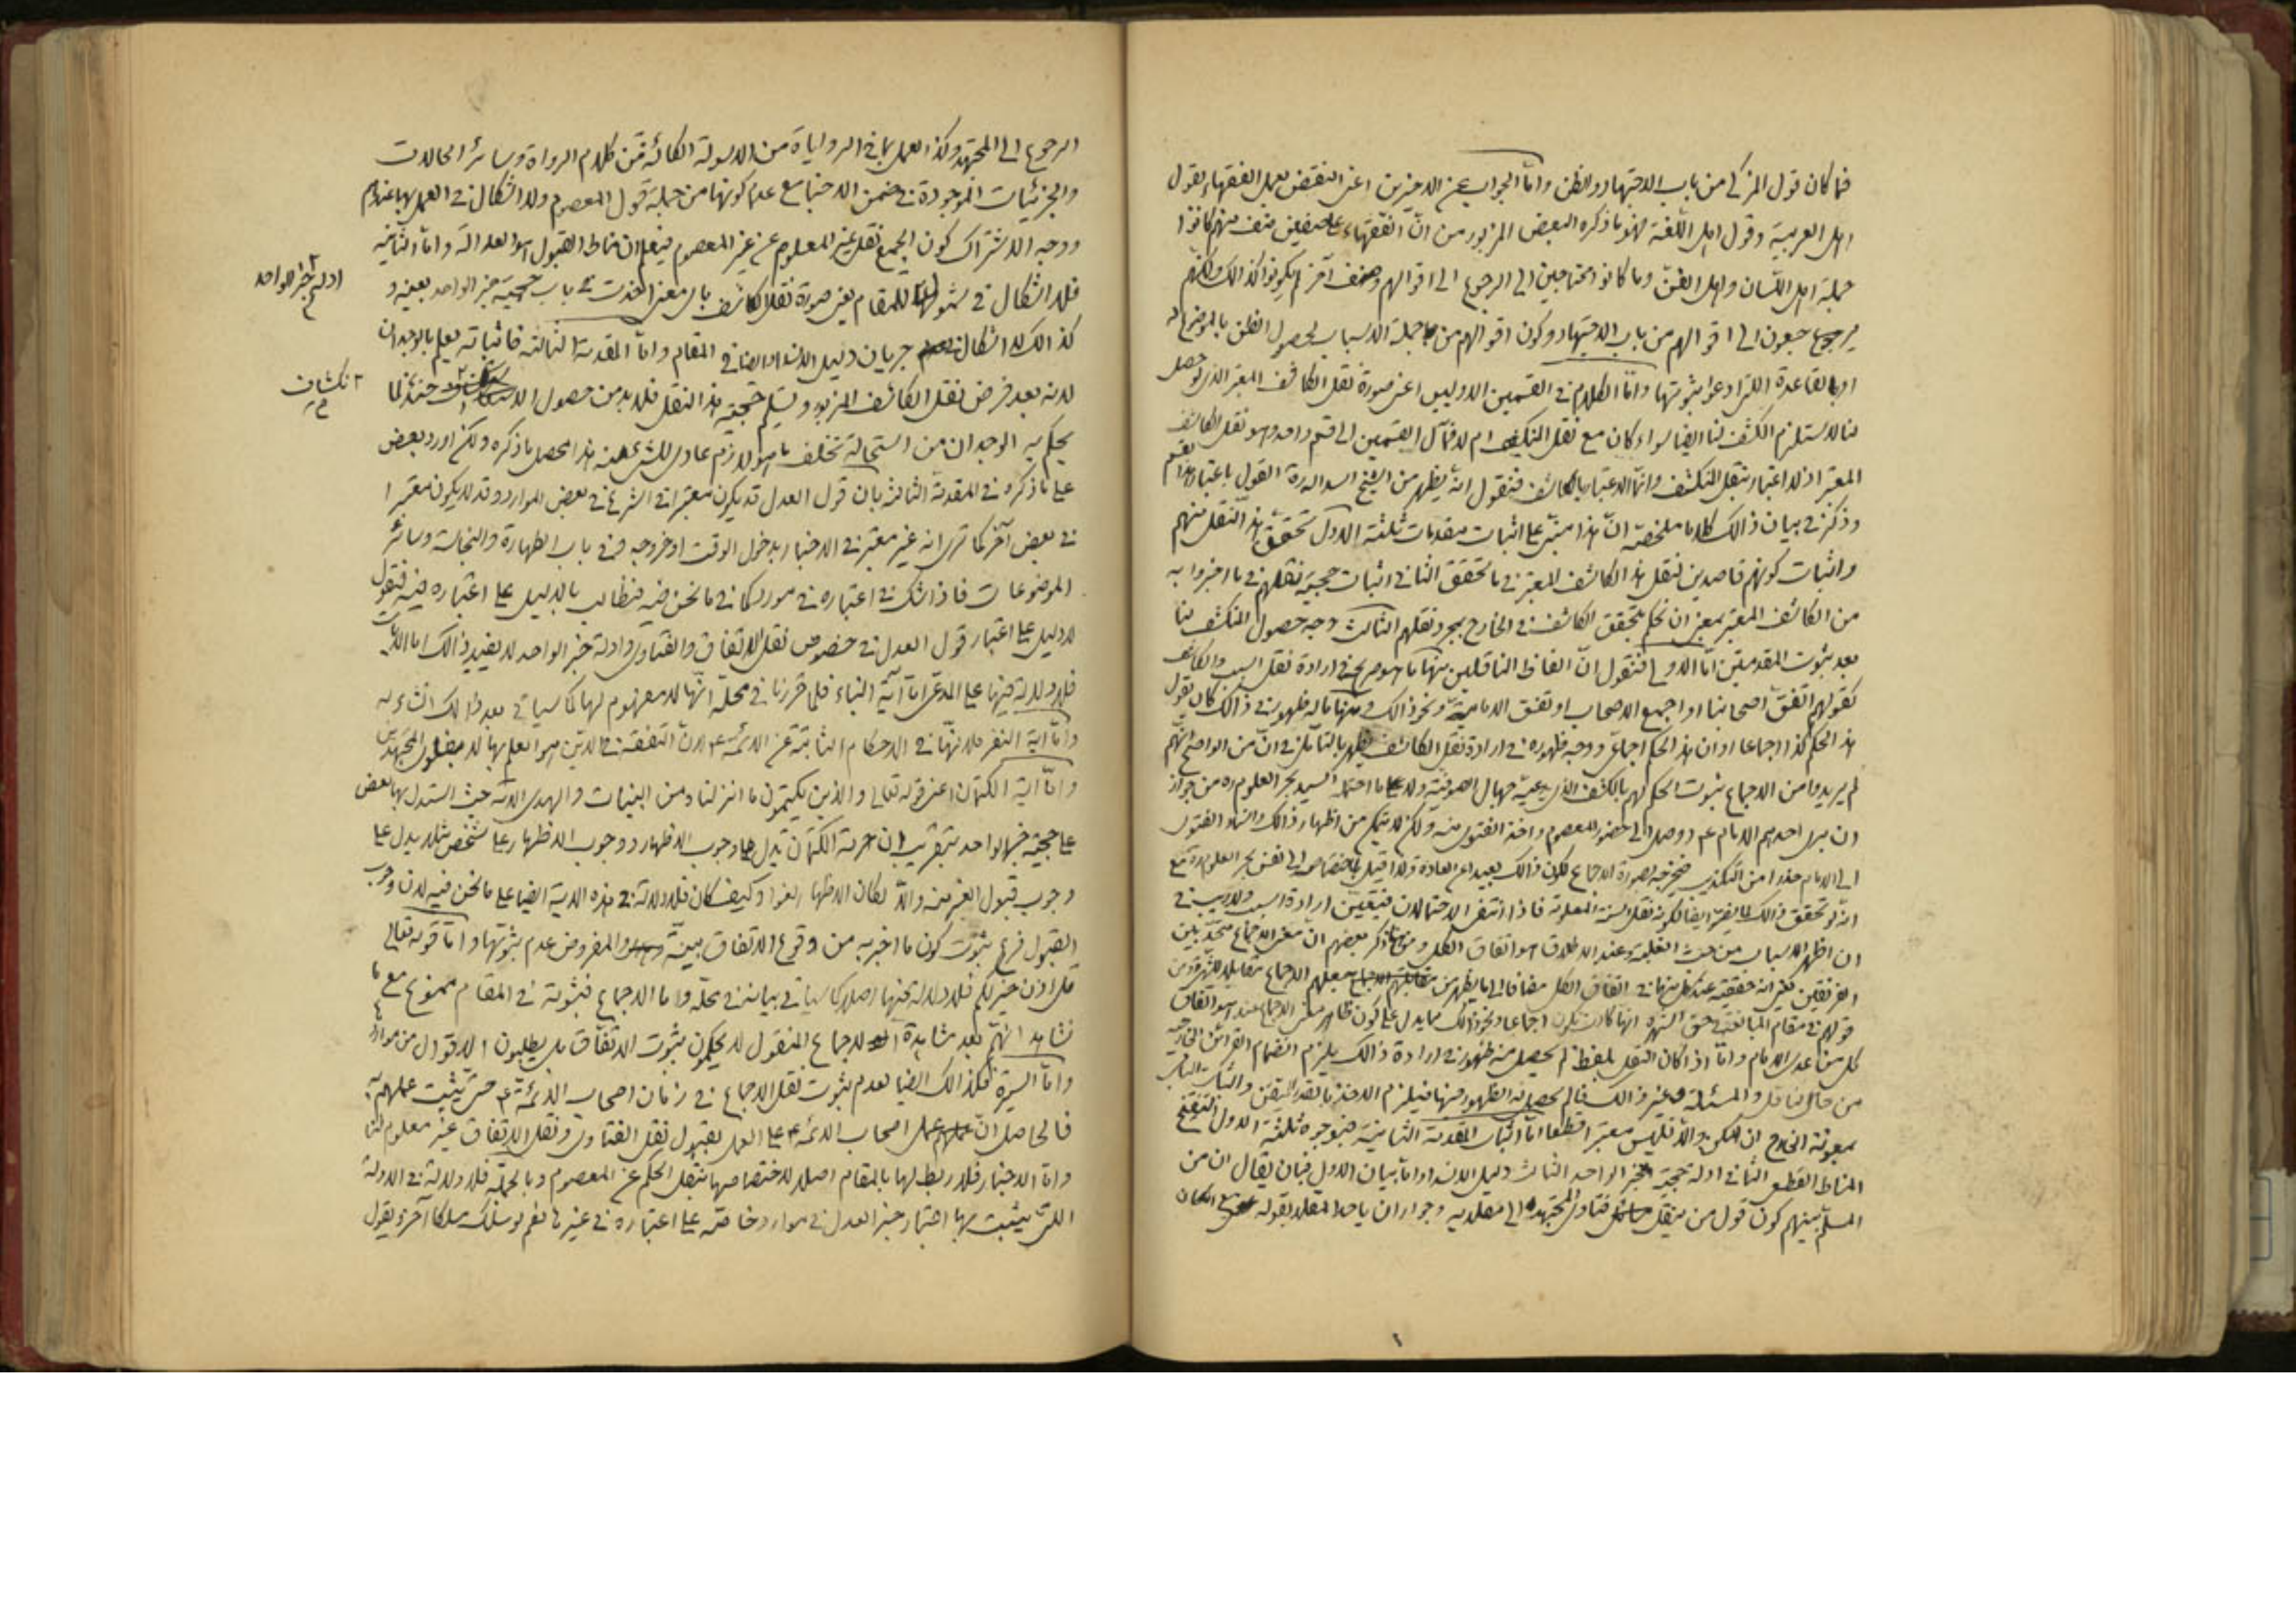 فما كان قول المزكى من باب الاجتهاد والظن واما الجواب عن الاخيرين اعنى النقض بعمل الفقهاء بقول
اهل العربية وقول اهل اللغة فهو ما ذكره البعض المزبور من ان الفقهاء على صنفين صنف منهم كانوا
جملة اهل اللسان واهل الفن وما كانوا محتاجين الى الرجوع الى اقوالهم وصنف آخر لم يكونوا كذالك ولكنهم
يرجعون الى اقوالهم من باب الاجتهاد وكون اقوالهم من جملة الاسباب لحصول الظن بالموضوع له
او بالقاعدة التى ادعوا ثبوتها واما الكلام فى القسمين الاوليين اعنى صورة نقل الكاشف المعتبر الذى لو حصل
لنا لاستلزم الكشف لنا ايضا سواء كان مع نقل المنكشف ام لا فمآل القسمين الى قسم واحد وهو نقل الكاشف
المعتبر اذ لا اعتبار بنقل المنكشف وانما الاعتبار بالكاشف فنقول انه يظهر من الشيخ اسد الله ره القول باعتبار هذا القسم
وذكر فى بيان ذالك كلاما ملخصه ان هذا مبتن على اثبات مقدمات ثلثة الاول تحقق هذا النقل منهم
واثبات كونهم قاصدين لنقل هذا الكاشف المعتبر فى ما تحقق الثانى اثبات حجية نقلهم فى ما اخبروا به
من الكاشف المعتبر بمعنى ان نحكم بتحقق الكاشف فى الخارج بمجرد نقلهم الثالث وجه حصول المنكشف لنا
بعد ثبوت المقدمتين اما الاولى فنقول ان الفاظ الناقلين منها ما هو صريح فى ارادة نقل السبب والكاشف
كقولهم اتفق اصحابنا او اجمع الاصحاب او تفق الامامية ونحو ذالك ومنها ما له ظهور فى ذالك كان يقول
هذا الحكم كذا اجماعا او ان هذا الحكم اجماعى ووجه ظهوره فى ارادة نقل الكاشف يظهر بالتأمل فى ان من الواضح انهم
لم يريدوا من الاجماع ثبوت الحكم لهم بالكشف الذى يدعيه جهال الصوفية ولا ما احتمله السيد بحر العلوم ره من جواز
ان يرى احدهم الامام عم او وصل الى حضور المعصوم واخذ الفتوى منه ولكن لا يتمكن من اظهار ذالك واسناد الفتوى
الى الامام حذرا من التكذيب فيخرجه بصورة الاجماع لكون ذالك بعيدا عن العادة ولذا قيل باختصاصه الى نفس بحر العلوم ره مع
انه لو تحقق ذالك لا يضر ايضا لكونه نقل السنة المعلومة فاذا انتفى الاحتمالان فيتعين ارادة السبب ولا ريب فى
ان اظهر الاسباب من حيث الغلبة وعند الاطلاق هو اتفاق الكل ومن هنا ذكر بعضهم ان معنى الاجماع متحد بين
الفريقين
قولهم فى مقام المبالغة فى حق الشهرة انها كادت تكون اجماعا ونحو ذالك مما يدل على كون ظاهر معنى الاجماع عندهم هو اتفاق
كل من عدى الامام واما اذا كان النقل بلفظ لم يحصل منه ظهور فى ارادة ذالك يلزم انضمام القرائن الخارجية
من حال الناقل والمسئلة وغير ذالك فما لم يحصل له الظهور منها فيلزم الاخذ بالقدر المتيقن
بمعونة الخارج ان امكن والا فليس معتبرا قطعا اما اثبات المقدمة الثانية فبوجوه ثلثة الاول التنقيح
المناط القطعى الثانى ادلة حجية خبر الواحد الثالث دليل الانسداد اما بيان الاول فبان يقال ان من
المسلم بينهم كون قول من ينقل فتاوى المجتهد الى مقلديه وجواز ان ياخذ المقلد بقوله مع امكان
الرجوع الى المجتهد وكذا العمل بما فى الروايات من الاسولة الكائنة من كلام الرواة وسائر الحالات
والجزئيات الموجودة فى ضمن الاخبار مع عدم كونها من جملة قول المعصوم ولا اشكال فى العمل بها عندهم
ووجه الاشتراك كون الجميع نقل غير المعلوم عن غير المعصوم فيعلم ان مناط القبول هو العدالة واما الثانية
فلا اشكال فى شمولها للمقام يعنى صورة نقل الكاشف بالمعنى الحدث فى باب حجية خبر الواحد بعينه و
ادلة خبر الواحد
كذالك لا اشكال فى جريان دليل الانسداد ايضا فى المقام واما المقدمة الثالثة فاثباته يعلم بالوجدان
لانه بعد فرض نقل الكاشف المزبور وتسليم حجية هذا النقل فلا بد من حصول الانكشاف حينئذ لما
انكشاف
يحكم به الوجدان من استحالة تخلف ما هو لازم عادى للشئ عنه هذا محصل ما ذكره ولكن اورد بعض
على ما ذكره فى المقدمة الثالثة بان قول العدل قد يكون معتبرا فى الشرع فى بعض الموارد وقد لا يكون معتبرا
فى بعض آخر كما ترى انه غير معتبر فى الاخبار بدخول الوقت او خروجه وفى باب الطهارة والنجاسة وسائر
الموضوعات فاذا شك فى اعتباره فى مورد كما فى ما نحن فيه فنطالب بالدليل على اعتباره فيه فنقول
لا دليل على اعتبار قول العدل فى خصوص نقل الاتفاق والفتاوى وادلة خبر الواحد لا يفيد ذالك اما الآيات
فلا دلالة فيها على المدعى اما آية النباء فلما قررنا فى محله انها لا مفهوم لها كما سياتى بعد ذالك انشاء الله
واما آية النفر فلانها فى الاحكام الثابتة عن الائمة عم لان التفقه فى الدين هو العلم بها لا بفتاوى المجتهدين
واما آية الكتمان اعنى قوله تعالى والذين يكتمون ما انزلنا من البينات والهدى الآية حيث استدل بها بعض
على حجية خبر الواحد بتقريب ان حرمة الكتمان تدل على وجوب الاظهار ووجوب الاظهار على شخص مثلا يدل على
وجوب قبول الغير منه والا لكان الاظهار لغوا وكيف كان فلا دلالة فى هذه الآية ايضا على ما نحن فيه لان وجوب
القبول فرع ثبوت كون ما اخبر به من وقوع الاتفاق بينة والمفروض عدم ثبوتها واما قوله تعالى
قل اذن خير لكم فلا دلالة فيها اصلا كما سياتى بيانه فى محله واما الاجماع فثبوته فى المقام ممنوع مع ما
نشاهد انهم بعد مشاهدة الاجماع المنقول لا يحكمون بثبوت الاتفاق بل يطلبون الاقوال من موارد
واما السيرة فكذالك ايضا لعدم ثبوت نقل الاجماع فى زمان اصحاب الائمة عم حتى يثبت عملهم به
فالحاصل ان عمل اصحاب الائمة عم على العمل بقبول نقل الفتاوى ونقل الاتفاق غير معلوم لنا
واما الاخبار فلا ربط لها بالمقام اصلا لاختصاصها بنقل الحكم عن المعصوم وبالجملة فلا دلالة فى الادلة
التى يثبت بها اعتبار خبر العدل فى موارد خاصة على اعتباره فى غيرها نعم لو سلك مسلكا آخر ويقول